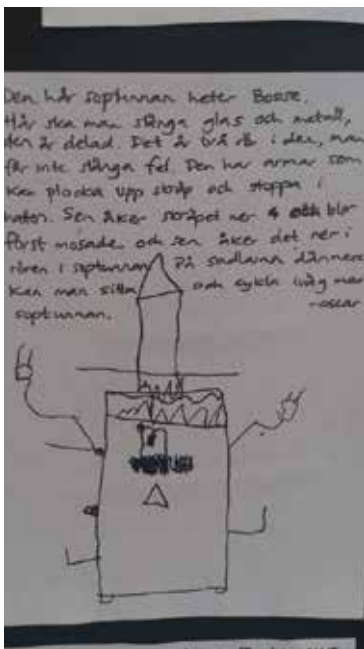 Den här soptunnan heter Bosse.
Här ska man slänga glas och metall,
den är delad. Det är två rör i den, man
får inte slänga fel. Den har armar som
kan plocka upp skräp och stoppa i
hatten. Sen åker skräpet ner och blir
först mosade och sen åker det ner i
rören i soptunnan. På sadlarna därnere
kan man sitta och cykla iväg med
soptunnan. -oscar